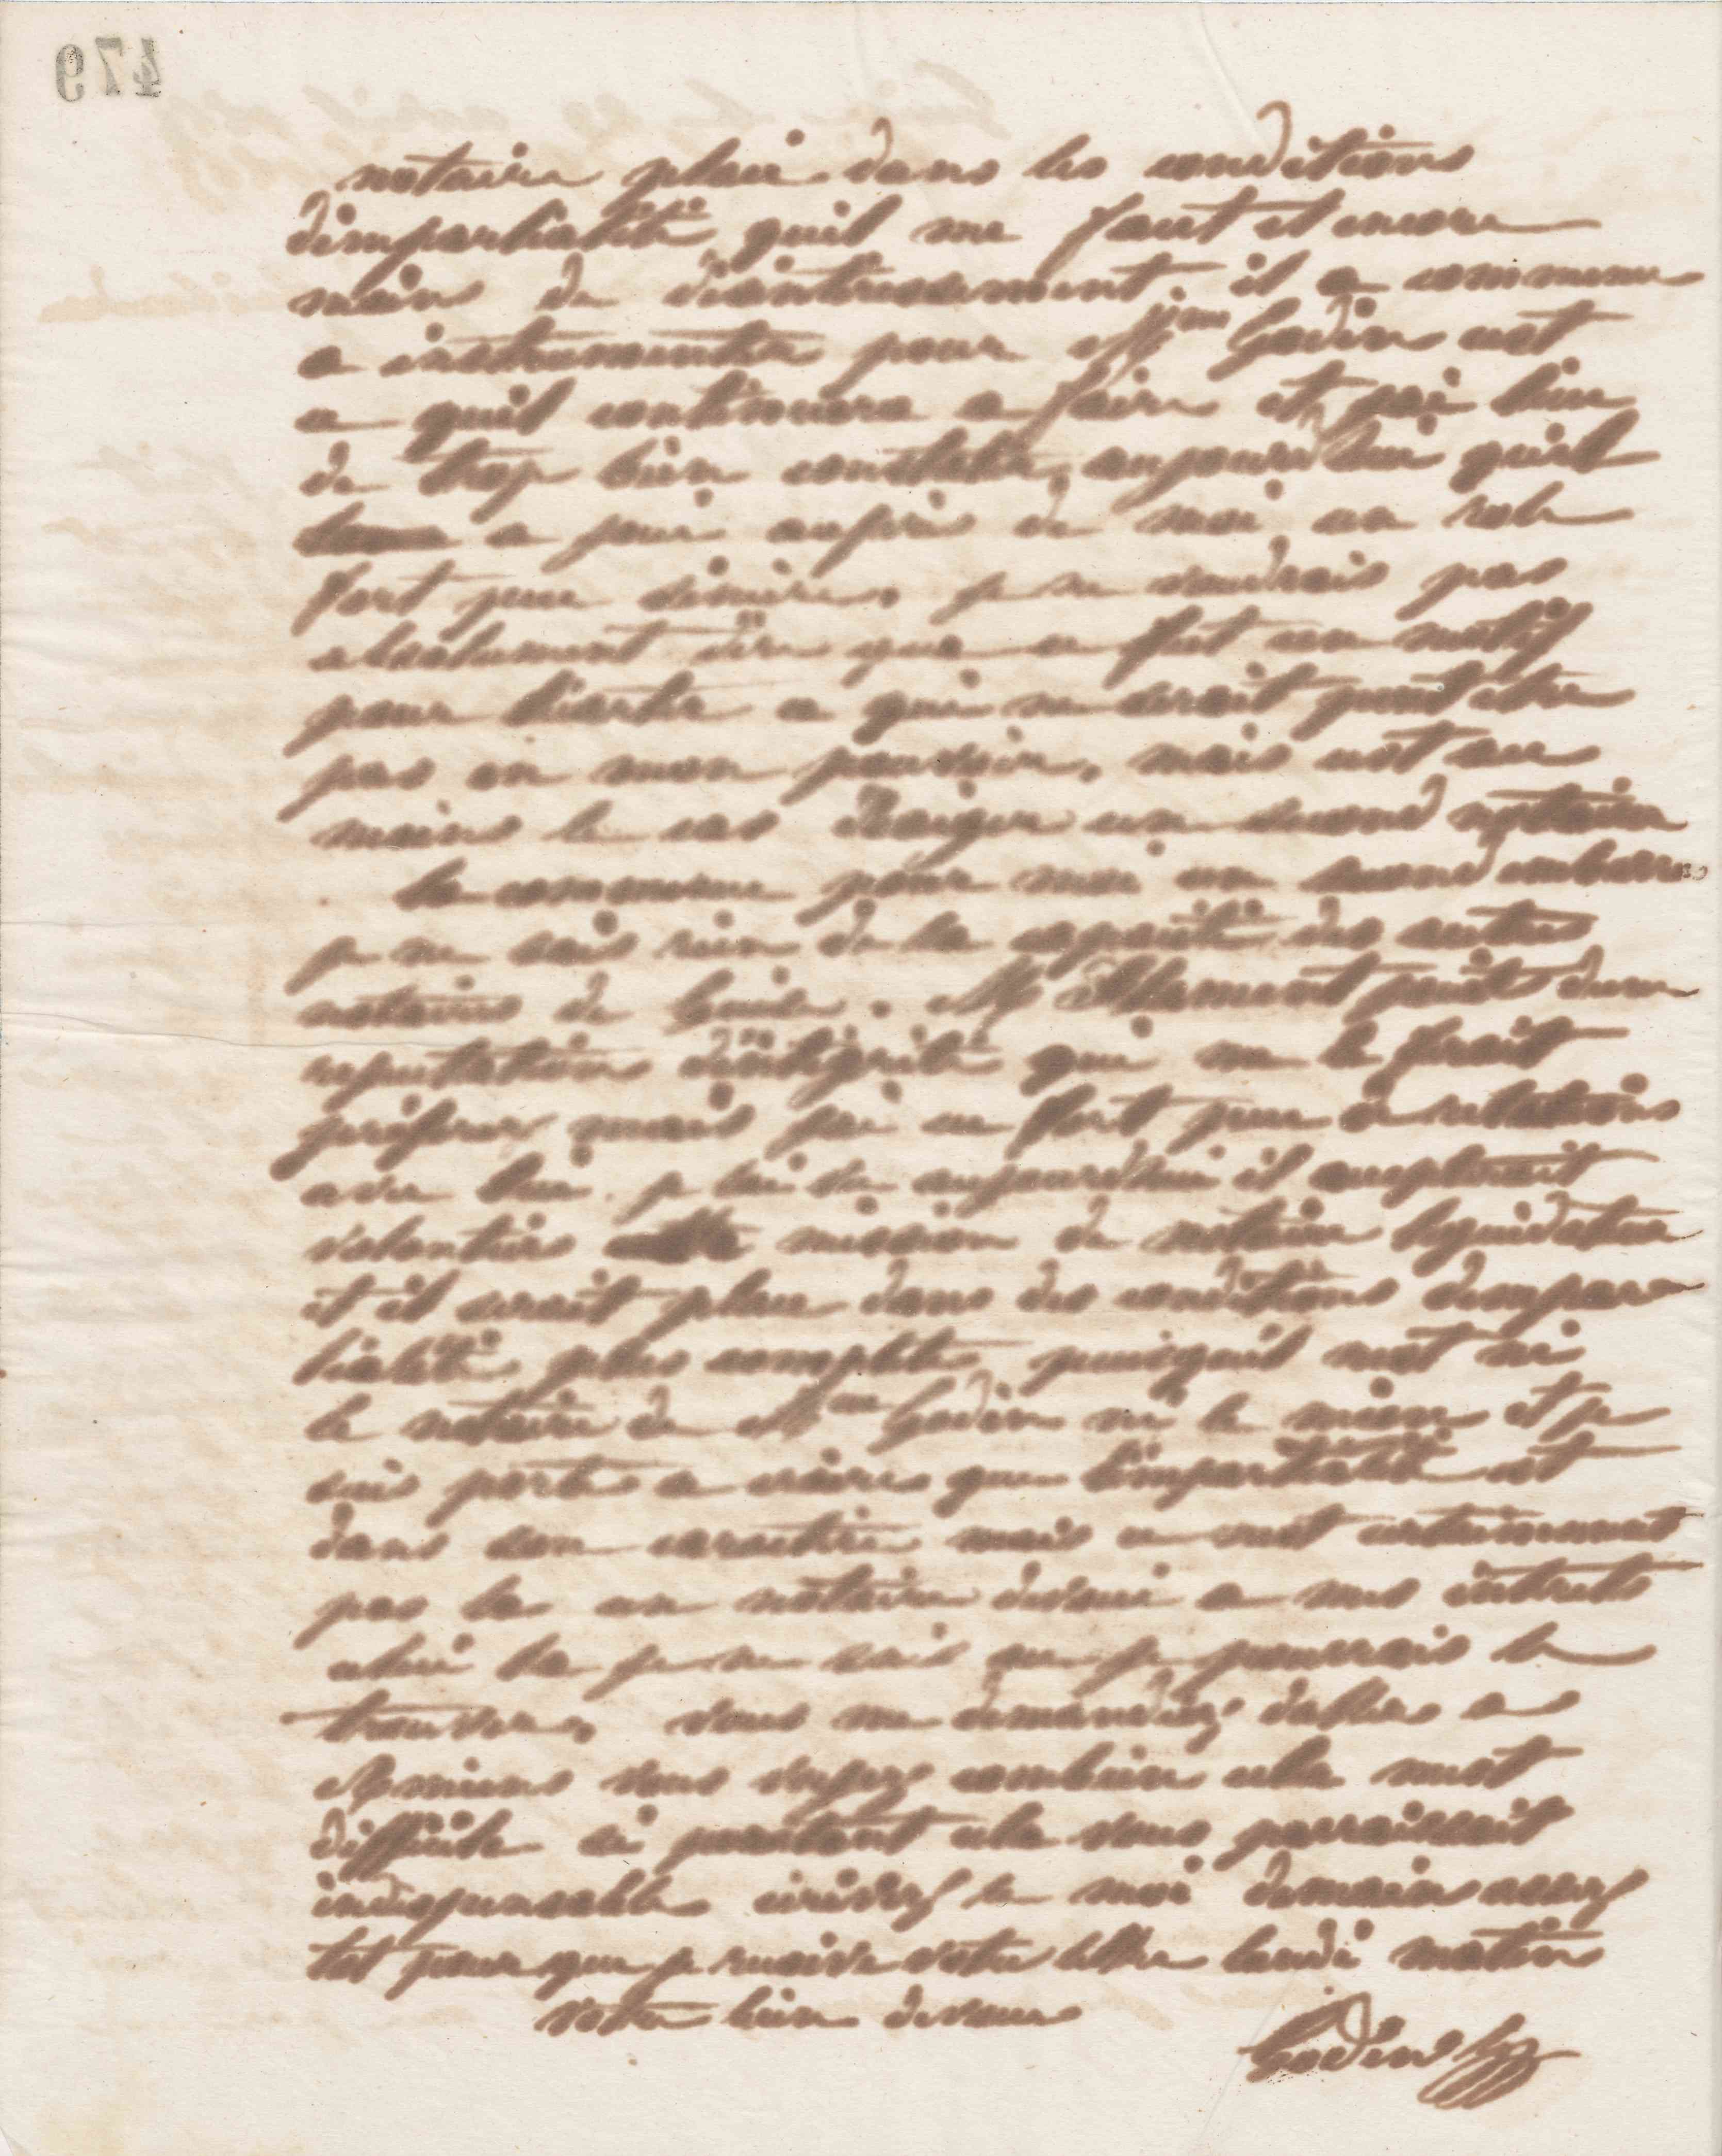 479
notaire placé dans les conditions
dimpartialité quil me faut et encore
moins de désintéressement, il a commencé
a instrumenter pour Mme Godin cest
ce quil continuera a faire et jai lieu
de trop bien constater aujourdhui quil
a joué auprès de moi un role
fort peu sincère, je ne voudrais pas
absolument dire que ce fut un motif
pour lécarter ce qui ne serait peut etre
pas en mon pouvoir, mais cest au
moins le cas dexiger un second notaire
la commence pour moi un second embarras
je ne sais rien de la capacité des autres
notaires de Guise. Mr Allement jouit dune
reputation dintégrité qui me le ferait
préférer mais jai eu fort peu de relations
avec lui. je lai vu aujourdhui il accepterait
volontiers mission de notaire liquidateur
et il serait placé dans des conditions dimpar
tialité plus complètes puisquil nest ni
le notaire de Mme Godin ni le mien et je
suis porté a croire que limpartialité est
dans son caractère mais ce nest certainement
pas la un notaire dévoué a mes intérets
celui la je ne sais ou je pourrais le
trouver, vous me demandez daller a
Amiens vous voyez combien cela mest
difficile si pourtant cela vous paraissait
indispensable écrivez le moi demain assez
tot pour que je reçoive votre lettre lundi matin
votre bien dévoué
Godin